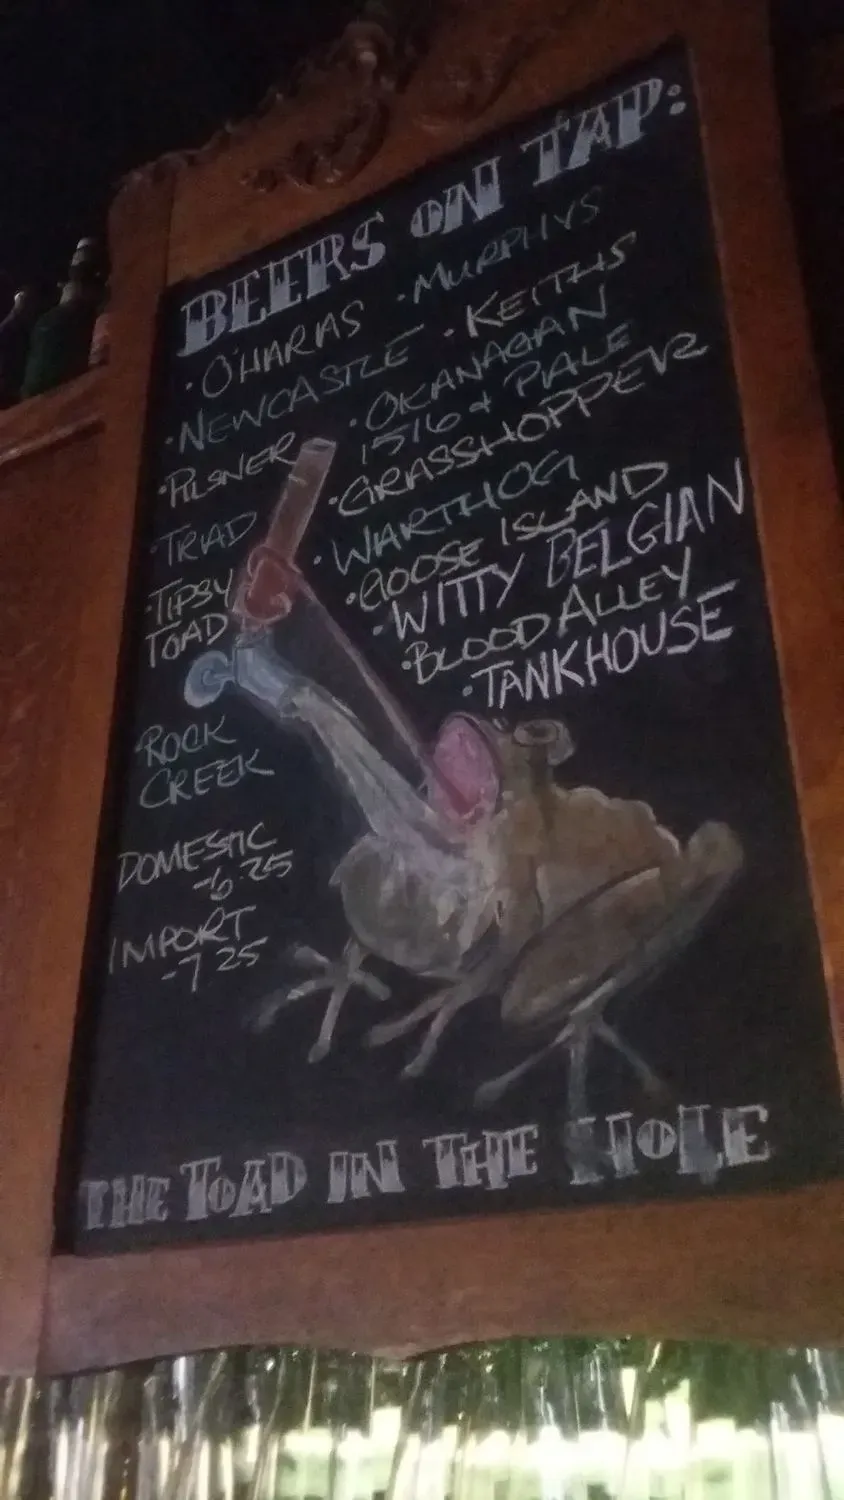 BEERS ON TAP:
· O'HARAS
· MURPHYS
· NEWCASTLE
· KEITHS
· PILSNER
· OKANAGAN
1516 + PALE
· TRAD
· GRASSHOPPER
· TIPSY
TOAD
· WARTHOG
· GOOSE ISLAND
· WITTY BELGIAN
· BLOOD ALLEY
· TANKHOUSE
ROCK
CREEK
DOMESTIC
-6.25
IMPORT
-7.25
THE TOAD IN THE HOLE